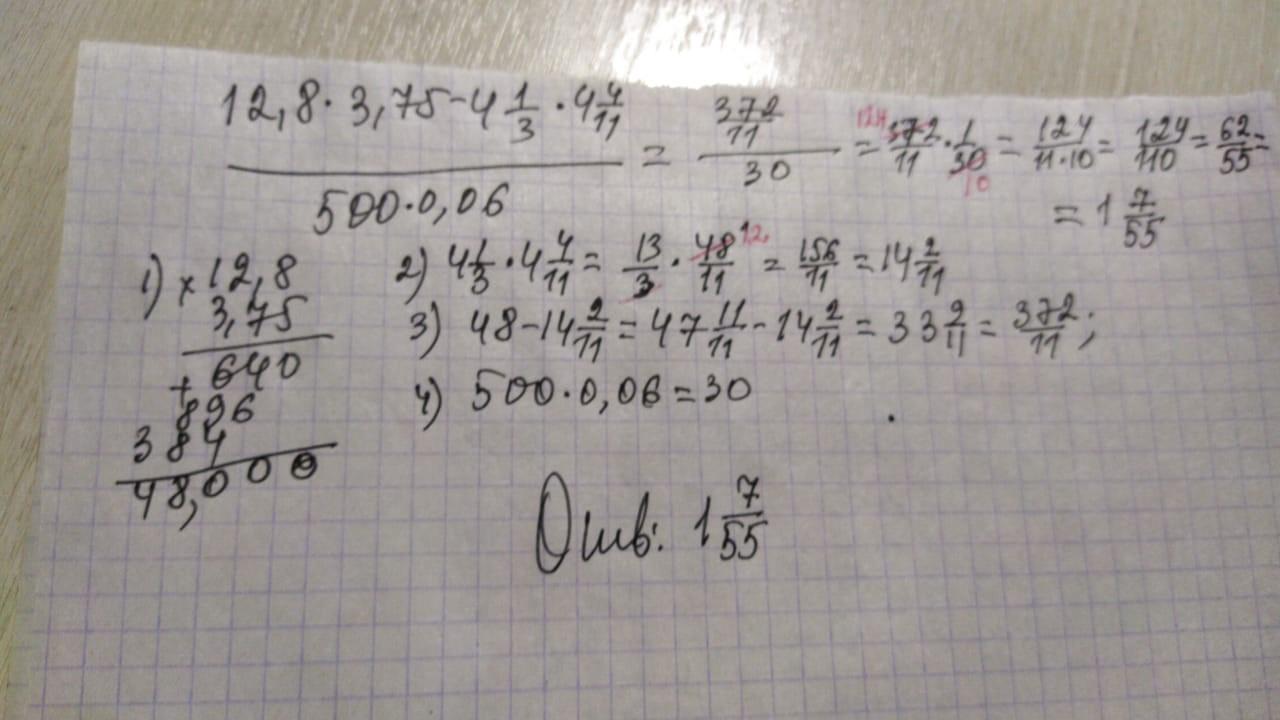 12,8·3,75-4 1/3·4 4/11 / 500·0,06 = 372/11 / 30 = 124 372/11·1/30 10 = 124/11·10 = 124/110 = 62/55 =
= 1 7/55
1) × 12,8
3,75
+ 640
896
384
48,000
2) 4 1/3·4 4/11 = 13/3·48/11 12 = 156/11 = 14 2/11
3) 48-14 2/11 = 47 11/11-14 2/11 = 33 9/11 = 372/11;
4) 500·0,06=30
Отв: 1 7/55